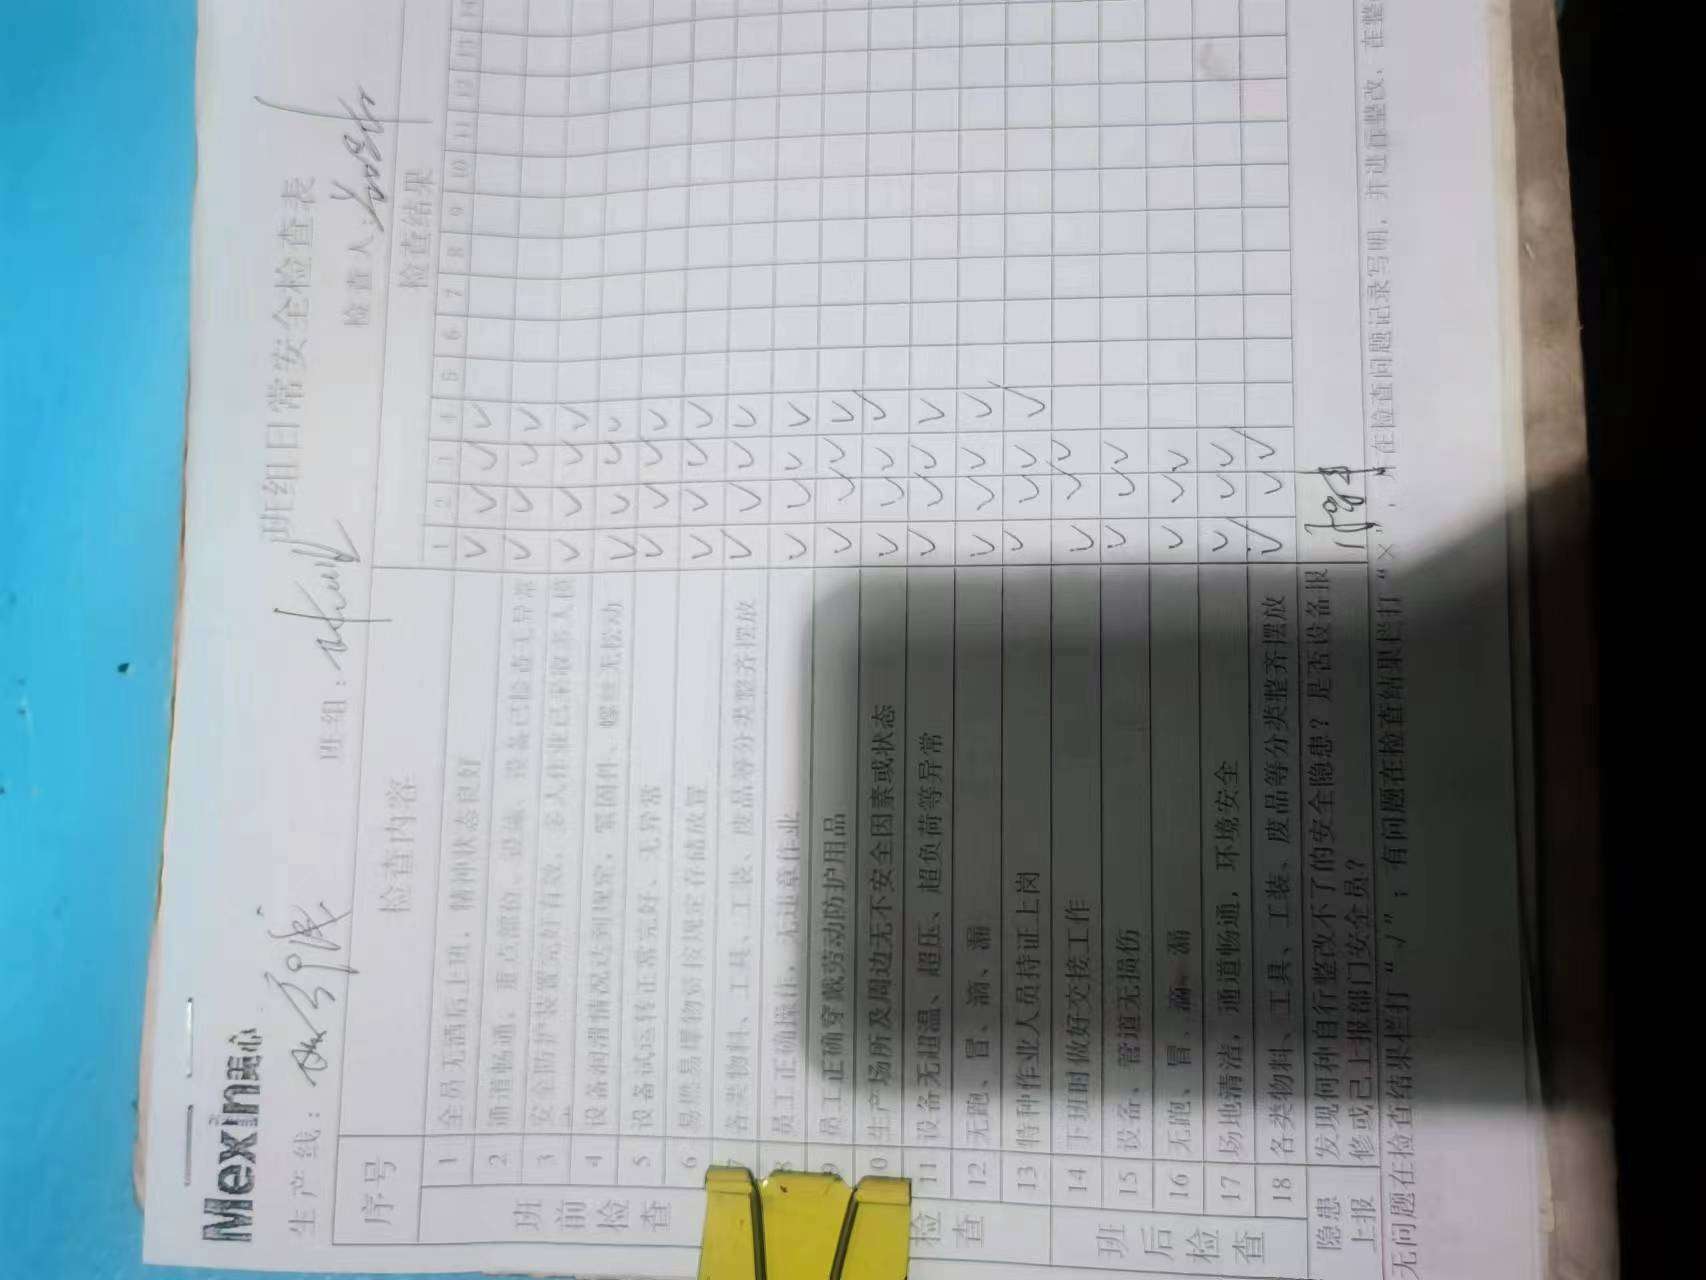 Mexin 美心
班组日常安全检查表
生产线：
班组：
检查人：
序号 检查内容 检查结果
1 2 3 4 5 6 7 8 9 10 11 12 13 14
班前检查
1 全员无酒后上班，精神状态良好 √ √ √ √
2 通道畅通，重点部位、设施、设备已检查无异常 √ √ √ √
3 安全防护装置完好有效，多人作业已 √ √ √ √
4 设备润滑情况达到规定，紧固件、螺丝无松动 √ √ √ √
5 设备试运转正常完好、无异常 √ √ √ √
6 易燃易爆物资按规定存储放置 √ √ √ √
7 各类物料、工具、工装、废品等分类整齐摆放 √ √ √ √
检查
8 员工正确操作，无违章作业 √ √ √ √
9 员工正确穿戴劳动防护用品 √ √ √ √
0 生产场所及周边无不安全因素或状态 √ √ √ √
11 设备无超温、超压、超负荷等异常 √ √ √ √
12 无跑、冒、滴、漏 √ √ √ √
13 特种作业人员持证上岗 √ √ √ √
班后检查
14 下班时做好交接工作 √ √ √
15 设备、管道无损伤 √ √ √
16 无跑、冒、滴、漏 √ √ √
17 场地清洁，通道畅通，环境安全 √ √ √
18 各类物料、工具、工装、废品等分类整齐摆放 √ √ √
隐患上报
发现何种自行整改不了的安全隐患？是否设备报
修或已上报部门安全员？
无问题在检查结果栏打“√”；有问题在检查结果栏打“×”，并在检查问题记录写明，并进行整改，在整